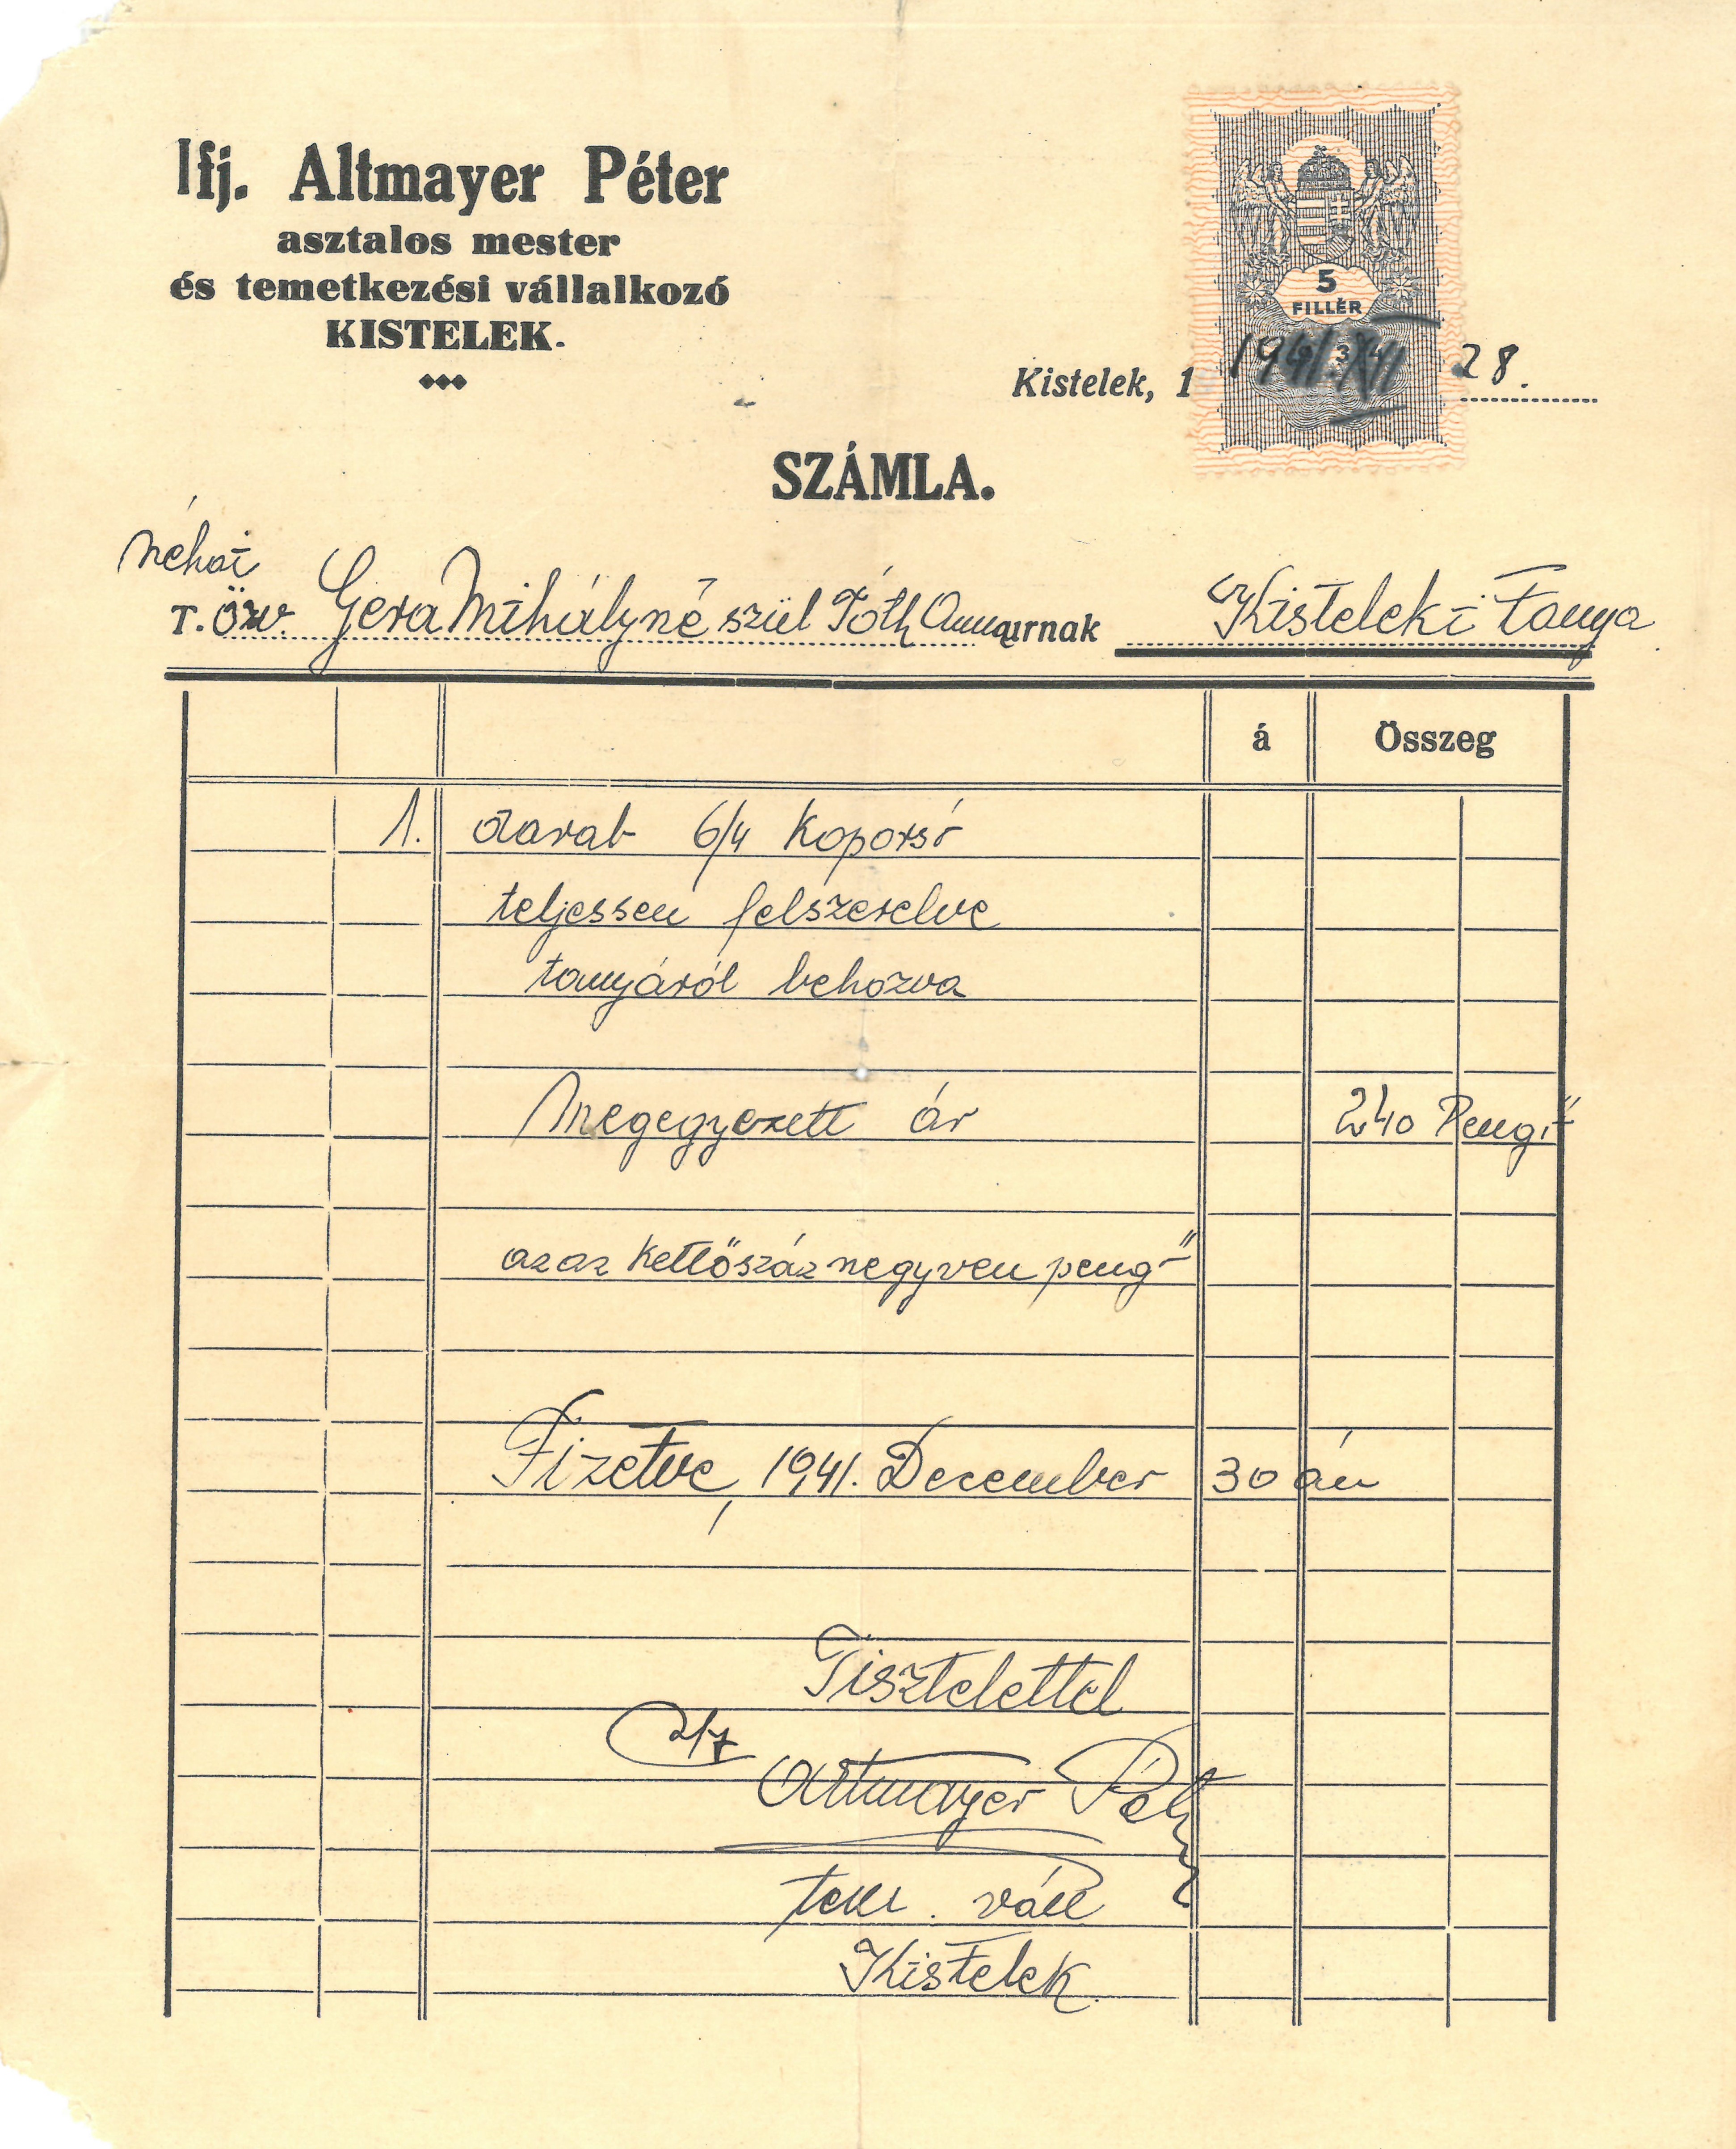 Ifj. Altmayer Péter
asztalos mester
és temetkezési vállalkozó
KISTELEK.
5
FILLÉR
Kistelek, 1 1941. 28.
SZÁMLA.
néhai
T. özv. Gera Mihályné szül Tóth Anna úrnak Kisteleki tanya
á Összeg
1. darab 6/4 Koporsó
teljessen felszerelve
tanyáról behozva
Megegyezett ár 240 Pengő
azaz Kettőszáz negyven pengő
Fizetve, 1941. December 30 án
Tisztelettel
Altmayer Péter
tem. váll
Kistelek